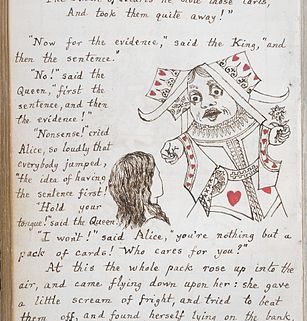 The Knave of Hearts he stole those tarts,
And took them quite away!"
"Now for the evidence," said the King, "and
then the sentence."
"No!" said the
Queen, "first the
sentence, and then
the evidence!"
"Nonsense!" cried
Alice, so loudly that
everybody jumped,
"the idea of having
the sentence first!
"Hold your
tongue!" said the Queen.
"I won't!" said Alice, "you're nothing but a
pack of cards! Who cares for you?"
At this the whole pack rose up into the
air, and came flying down upon her: she gave
a little scream of fright, and tried to beat
them off, and found herself lying on the bank,